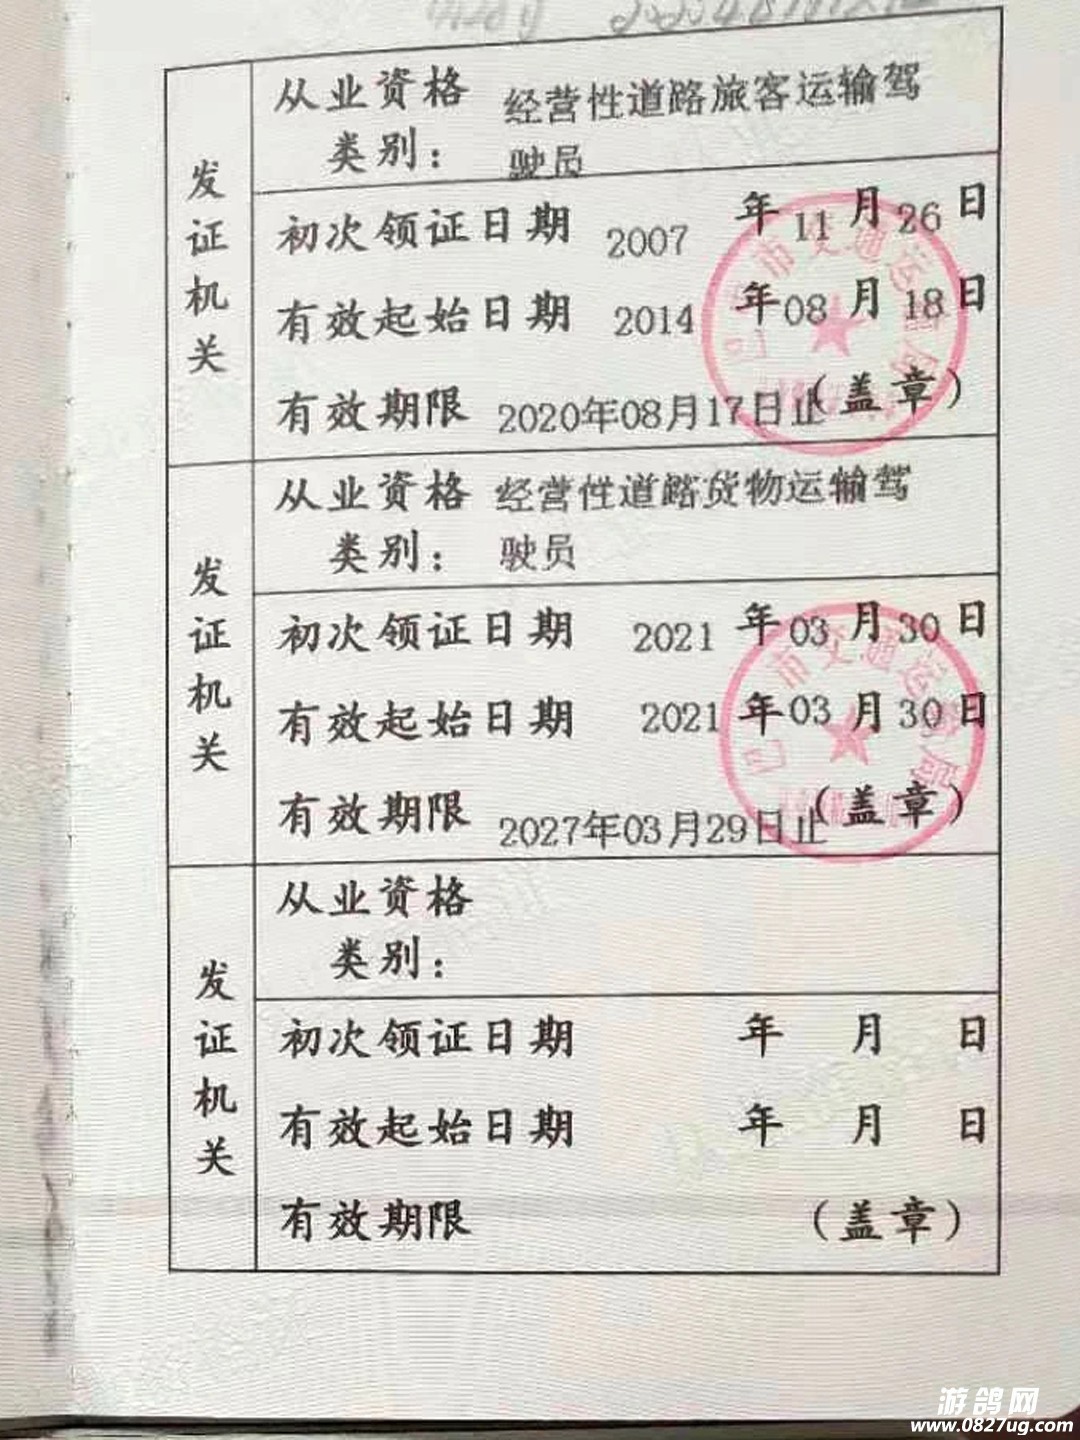 从业资格 经营性道路旅客运输驾
类别： 驶员
发证机关
初次领证日期 2007 年 11 月 26 日
有效起始日期 2014 年 08 月 18 日
有效期限 2020年08月17日止 （盖章）
从业资格 经营性道路货物运输驾
类别： 驶员
发证机关
初次领证日期 2021 年 03 月 30 日
有效起始日期 2021 年 03 月 30 日
有效期限 2027年03月29日止 （盖章）
从业资格
类别：
发证机关
初次领证日期 年 月 日
有效起始日期 年 月 日
有效期限 （盖章）
市交通运
局
市交通运
局
游鸽网
www.0827ug.com